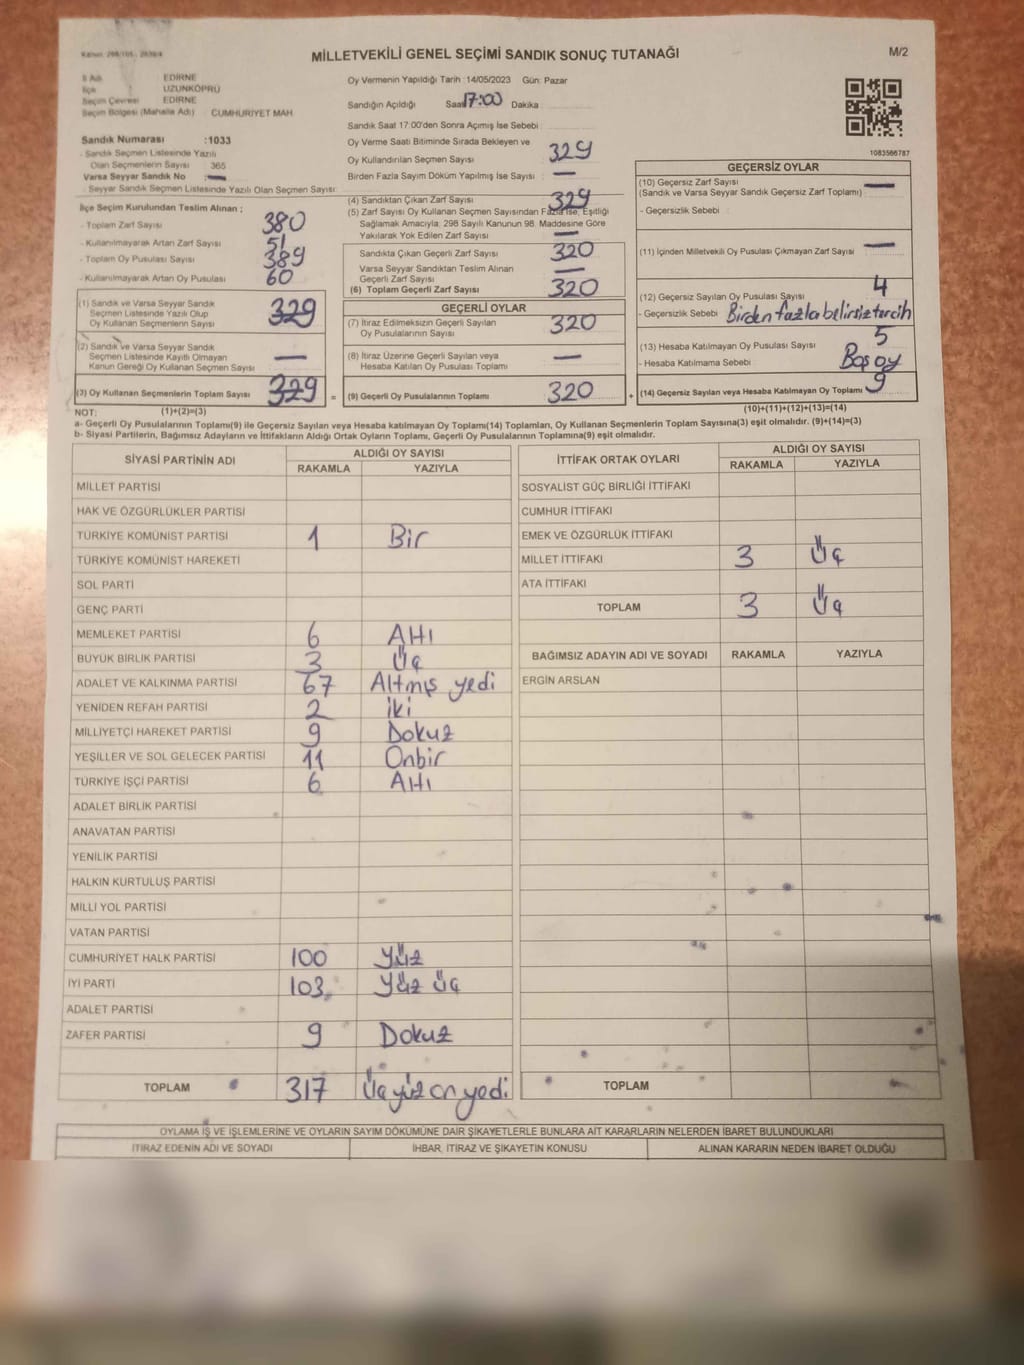 MİLLETVEKİLİ GENEL SEÇİMİ SANDIK SONUÇ TUTANAĞI
M/2
İl Adı : EDİRNE
İlçe : UZUNKÖPRÜ
Seçim Çevresi EDİRNE
Seçim Bölgesi (Mahalle Adı) CUMHURİYET MAH
Sandık Numarası :1033
- Sandık Seçmen Listesinde Yazılı
Olan Seçmenlerin Sayısı 365
Varsa Seyyar Sandık No : —
- Seyyar Sandık Seçmen Listesinde Yazılı Olan Seçmen Sayısı:
İlçe Seçim Kurulundan Teslim Alınan ;
- Toplam Zarf Sayısı 380
- Kullanılmayarak Artan Zarf Sayısı 51
- Toplam Oy Pusulası Sayısı 389
- Kullanılmayarak Artan Oy Pusulası 60
(1) Sandık ve Varsa Seyyar Sandık
Seçmen Listesinde Yazılı Olup
Oy Kullanan Seçmenlerin Sayısı 329
(2) Sandık ve Varsa Seyyar Sandık
Seçmen Listesinde Kayıtlı Olmayan
Kanun Gereği Oy Kullanan Seçmen Sayısı —
(3) Oy Kullanan Seçmenlerin Toplam Sayısı 329 =
Oy Vermenin Yapıldığı Tarih :14/05/2023 Gün: Pazar
Sandığın Açıldığı Saat 17:00 Dakika :
Sandık Saat 17:00'den Sonra Açımış İse Sebebi :
Oy Verme Saati Bitiminde Sırada Bekleyen ve
Oy Kullandırılan Seçmen Sayısı : 329
Birden Fazla Sayım Döküm Yapılmış İse Sayısı : —
(4) Sandıktan Çıkan Zarf Sayısı 329
(5) Zarf Sayısı Oy Kullanan Seçmen Sayısından Fazla İse, Eşitliği
Sağlamak Amacıyla, 298 Sayılı Kanunun 98. Maddesine Göre
Yakılarak Yok Edilen Zarf Sayısı —
Sandıkta Çıkan Geçerli Zarf Sayısı 320
Varsa Seyyar Sandıktan Teslim Alınan
Geçerli Zarf Sayısı —
(6) Toplam Geçerli Zarf Sayısı 320
GEÇERLİ OYLAR
(7) İtiraz Edilmeksizin Geçerli Sayılan
Oy Pusulalarının Sayısı 320
(8) İtiraz Üzerine Geçerli Sayılan veya
Hesaba Katılan Oy Pusulaları Toplamı —
(9) Geçerli Oy Pusulalarının Toplamı 320 +
1083566787
GEÇERSİZ OYLAR
(10) Geçersiz Zarf Sayısı —
(Sandık ve Varsa Seyyar Sandık Geçersiz Zarf Toplamı)
- Geçersizlik Sebebi :
(11) İçinden Milletvekili Oy Pusulası Çıkmayan Zarf Sayısı —
(12) Geçersiz Sayılan Oy Pusulası Sayısı 4
- Geçersizlik Sebebi : Birden fazla belirsiz tercih
(13) Hesaba Katılmayan Oy Pusulası Sayısı 5
- Hesaba Katılmama Sebebi : Boş oy
(14) Geçersiz Sayılan veya Hesaba Katılmayan Oy Toplamı 9
NOT: (1)+(2)=(3) (10)+(11)+(12)+(13)=(14)
a- Geçerli Oy Pusulalarının Toplamı(9) ile Geçersiz Sayılan veya Hesaba katılmayan Oy Toplamı(14) Toplamları, Oy Kullanan Seçmenlerin Toplam Sayısına(3) eşit olmalıdır. (9)+(14)=(3)
b- Siyasi Partilerin, Bağımsız Adayların ve İttifakların Aldığı Ortak Oyların Toplamı, Geçerli Oy Pusulalarının Toplamına(9) eşit olmalıdır.
SİYASİ PARTİNİN ADI ALDIĞI OY SAYISI
RAKAMLA YAZIYLA
MİLLET PARTİSİ
HAK VE ÖZGÜRLÜKLER PARTİSİ
TÜRKİYE KOMÜNİST PARTİSİ 1 Bir
TÜRKİYE KOMÜNİST HAREKETİ
SOL PARTİ
GENÇ PARTİ
MEMLEKET PARTİSİ 6 Altı
BÜYÜK BİRLİK PARTİSİ 3 Üç
ADALET VE KALKINMA PARTİSİ 67 Altmış yedi
YENİDEN REFAH PARTİSİ 2 iki
MİLLİYETÇİ HAREKET PARTİSİ 9 Dokuz
YEŞİLLER VE SOL GELECEK PARTİSİ 11 Onbir
TÜRKİYE İŞÇİ PARTİSİ 6 Altı
ADALET BİRLİK PARTİSİ
ANAVATAN PARTİSİ
YENİLİK PARTİSİ
HALKIN KURTULUŞ PARTİSİ
MİLLİ YOL PARTİSİ
VATAN PARTİSİ
CUMHURİYET HALK PARTİSİ 100 Yüz
İYİ PARTİ 103 Yüz üç
ADALET PARTİSİ
ZAFER PARTİSİ 9 Dokuz
TOPLAM 317 Üçyüz on yedi
İTTİFAK ORTAK OYLARI ALDIĞI OY SAYISI
RAKAMLA YAZIYLA
SOSYALİST GÜÇ BİRLİĞİ İTTİFAKI
CUMHUR İTTİFAKI
EMEK VE ÖZGÜRLÜK İTTİFAKI
MİLLET İTTİFAKI 3 Üç
ATA İTTİFAKI
TOPLAM 3 Üç
BAĞIMSIZ ADAYIN ADI VE SOYADI RAKAMLA YAZIYLA
ERGİN ARSLAN
TOPLAM
OYLAMA İŞ VE İŞLEMLERİNE VE OYLARIN SAYIM DÖKÜMÜNE DAİR ŞİKAYETLERLE BUNLARA AİT KARARLARIN NELERDEN İBARET BULUNDUKLARI
İTİRAZ EDENİN ADI VE SOYADI İHBAR, İTİRAZ VE ŞİKAYETİN KONUSU ALINAN KARARIN NEDEN İBARET OLDUĞU